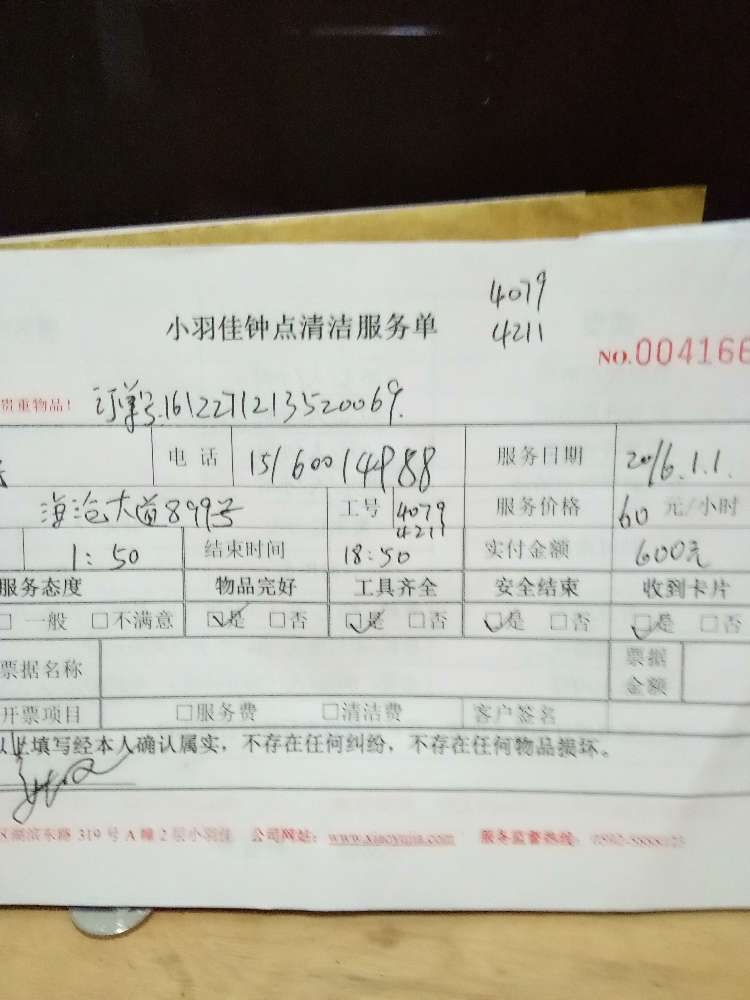 4079
小羽佳钟点清洁服务单 4211
NO.004166
贵重物品! 订单号:1612271213520069.
电 话 15160014988 服务日期 2016.1.1.
海沧大道899号 工号 4079 4211 服务价格 60 元/小时
1:50 结束时间 18:50 实付金额 600元
服务态度 物品完好 工具齐全 安全结束 收到卡片
□ 一般 □不满意 ☑是 □否 ☑是 □否 ☑是 □否 ☑是 □否
票据名称 票据金额
开票项目 □服务费 □清洁费 客户签名
以上填写经本人确认属实，不存在任何纠纷，不存在任何物品损坏。
区湖滨东路 319 号 A 幢 2 层小羽佳 公司网站: www.xiaoyujia.com 服务监督热线: